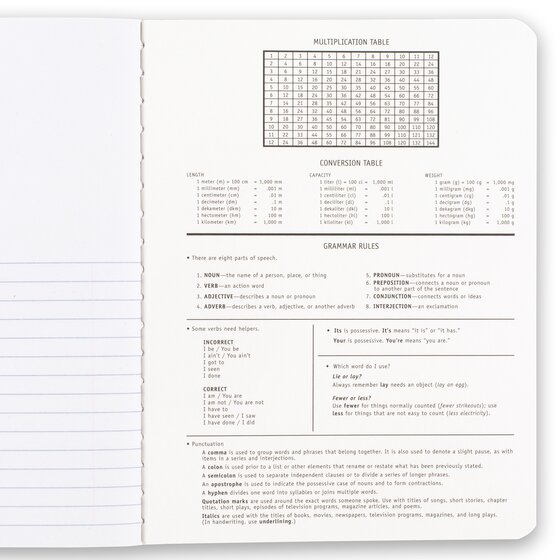 MULTIPLICATION TABLE
1 2 3 4 5 6 7 8 9 10 11 12
2 4 6 8 10 12 14 16 18 20 22 24
3 6 9 12 15 18 21 24 27 30 33 36
4 8 12 16 20 24 28 32 36 40 44 48
5 10 15 20 25 30 35 40 45 50 55 60
6 12 18 24 30 36 42 48 54 60 66 72
7 14 21 28 35 42 49 56 63 70 77 84
8 16 24 32 40 48 56 64 72 80 88 96
9 18 27 36 45 54 63 72 81 90 99 108
10 20 30 40 50 60 70 80 90 100 110 120
11 22 33 44 55 66 77 88 99 110 121 132
12 24 36 48 60 72 84 96 108 120 132 144
CONVERSION TABLE
LENGTH
1 meter (m) = 100 cm = 1,000 mm
1 millimeter (mm) = .001 m
1 centimeter (cm) = .01 m
1 decimeter (dm) = .1 m
1 dekameter (dkm) = 10 m
1 hectometer (hm) = 100 m
1 kilometer (km) = 1,000 m
CAPACITY
1 liter (l) = 100 cl = 1,000 ml
1 milliliter (ml) = .001 l
1 centiliter (cl) = .01 l
1 deciliter (dl) = .1 l
1 dekaliter (dkl) = 10 l
1 hectoliter (hl) = 100 l
1 kiloliter (kl) = 1,000 l
WEIGHT
1 gram (g) = 100 cg = 1,000 mg
1 milligram (mg) = .001 g
1 centigram (cg) = .01 g
1 decigram (dg) = .1 g
1 dekagram (dkg) = 10 g
1 hectogram (hg) = 100 g
1 kilogram (kg) = 1,000 g
GRAMMAR RULES
• There are eight parts of speech.
1. NOUN—the name of a person, place, or thing
2. VERB—an action word
3. ADJECTIVE—describes a noun or pronoun
4. ADVERB—describes a verb, adjective, or another adverb
5. PRONOUN—substitutes for a noun
6. PREPOSITION—connects a noun or pronoun
to another part of the sentence
7. CONJUNCTION—connects words or ideas
8. INTERJECTION—an exclamation
• Some verbs need helpers.
INCORRECT
I be / You be
I ain't / You ain't
I got to
I seen
I done
CORRECT
I am / You are
I am not / You are not
I have to
I have seen / I saw
I have done / I did
• Its is possessive. It's means "it is" or "it has."
Your is possessive. You're means "you are."
• Which word do I use?
Lie or lay?
Always remember lay needs an object (lay an egg).
Fewer or less?
Use fewer for things normally counted (fewer strikeouts); use
less for things that are not easy to count (less electricity).
• Punctuation
A comma is used to group words and phrases that belong together. It is also used to denote a slight pause, as with
items in a series and interjections.
A colon is used prior to a list or other elements that rename or restate what has been previously stated.
A semicolon is used to separate independent clauses or to divide a series of longer phrases.
An apostrophe is used to indicate the possessive case of nouns and to form contractions.
A hyphen divides one word into syllables or joins multiple words.
Quotation marks are used around the exact words someone spoke. Use with titles of songs, short stories, chapter
titles, short plays, episodes of television programs, magazine articles, and poems.
Italics are used with the titles of books, movies, newspapers, television programs, magazines, and long plays.
(In handwriting, use underlining.)